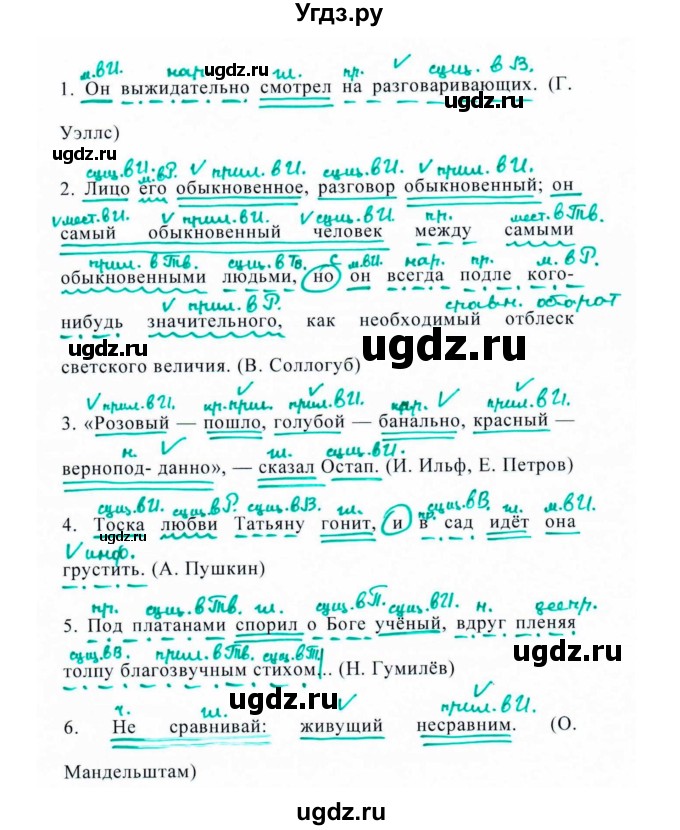 Угдз.ру
м.вИ. нар. гл. пр. V сущ. в В.
ugdz.ru
1. Он выжидательно смотрел на разговаривающих. (Г.
ugdz.ru
Уэллс)
ugdz.ru
сущ.вИ. м.вР. V прил. в И. сущ. в И. V прил. в И.
2. Лицо его обыкновенное, разговор обыкновенный; он
V мест.вИ. V прил.вИ. V сущ.вИ. пр. мест.вТв.
самый обыкновенный человек между самыми
прил. в Тв. сущ.вТв. с м.вИ. нар. пр. м. в Р.
обыкновенными людьми, но он всегда подле кого-
V прил. в Р. сравн. оборот
нибудь значительного, как необходимый отблеск
ugdz.ru
ugdz.ru
светского величия. (В. Соллогуб)
V прил.вИ. кр.прил. прил.вИ. нар. V прил.вИ.
3. «Розовый — пошло, голубой — банально, красный —
ugdz.ru
н. V гл. сущ.вИ.
вернопод- данно», — сказал Остап. (И. Ильф, Е. Петров)
сущ.вИ. сущ.вР. сущ.вВ. гл. пр. сущ.вВ. гл. м.вИ.
4. Тоска любви Татьяну гонит, и в сад идёт она
V инф.
грустить. (А. Пушкин)
ugdz.ru
пр. сущ.вТв. гл. сущ.вП. сущ.вИ. н. деепр.
5. Под платанами спорил о Боге учёный, вдруг пленяя
сущ.вВ. прил.вТв. сущ.вТ
толпу благозвучным стихом... (Н. Гумилёв)
ugdz.ru
ugdz.ru
ч. гл. V прил.вИ.
6. Не сравнивай: живущий несравним. (О.
ugdz.ru
Мандельштам)
ugdz.ru